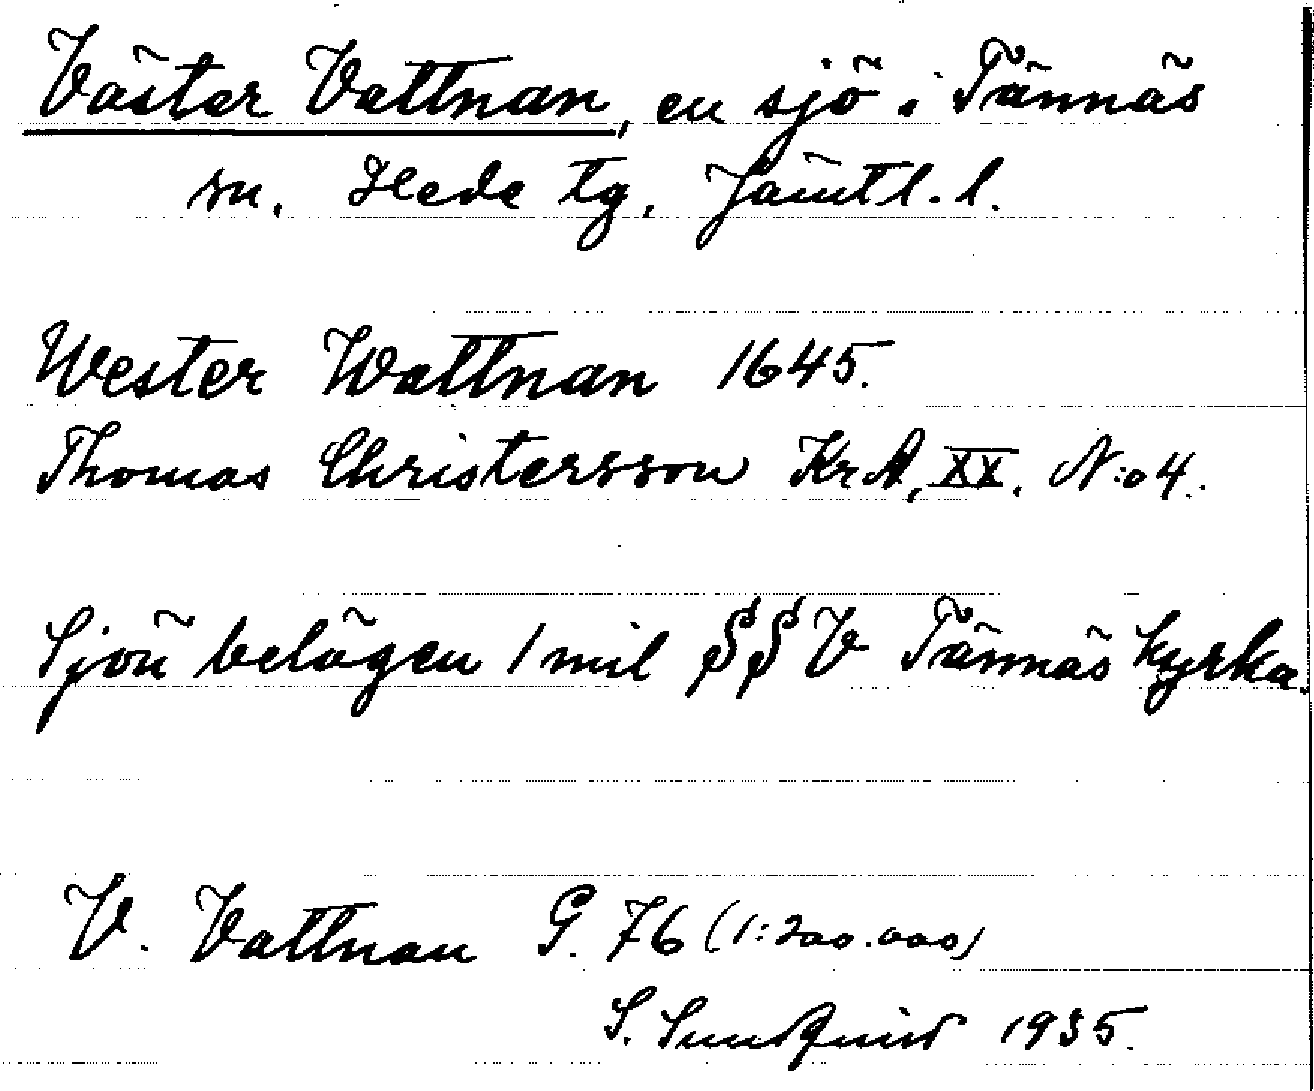 Väster Vattnan, en sjö i Tännäs
sn. Hede tg. Jämtl. l.
Wester Wattnan 1645.
Thomas Christersson KrA, XX. N:o 4.
Sjön belägen 1 mil SSV Tännäs kyrka.
V. Vattnan G. 76 (1:200.000)
S. Sundquist 1935.